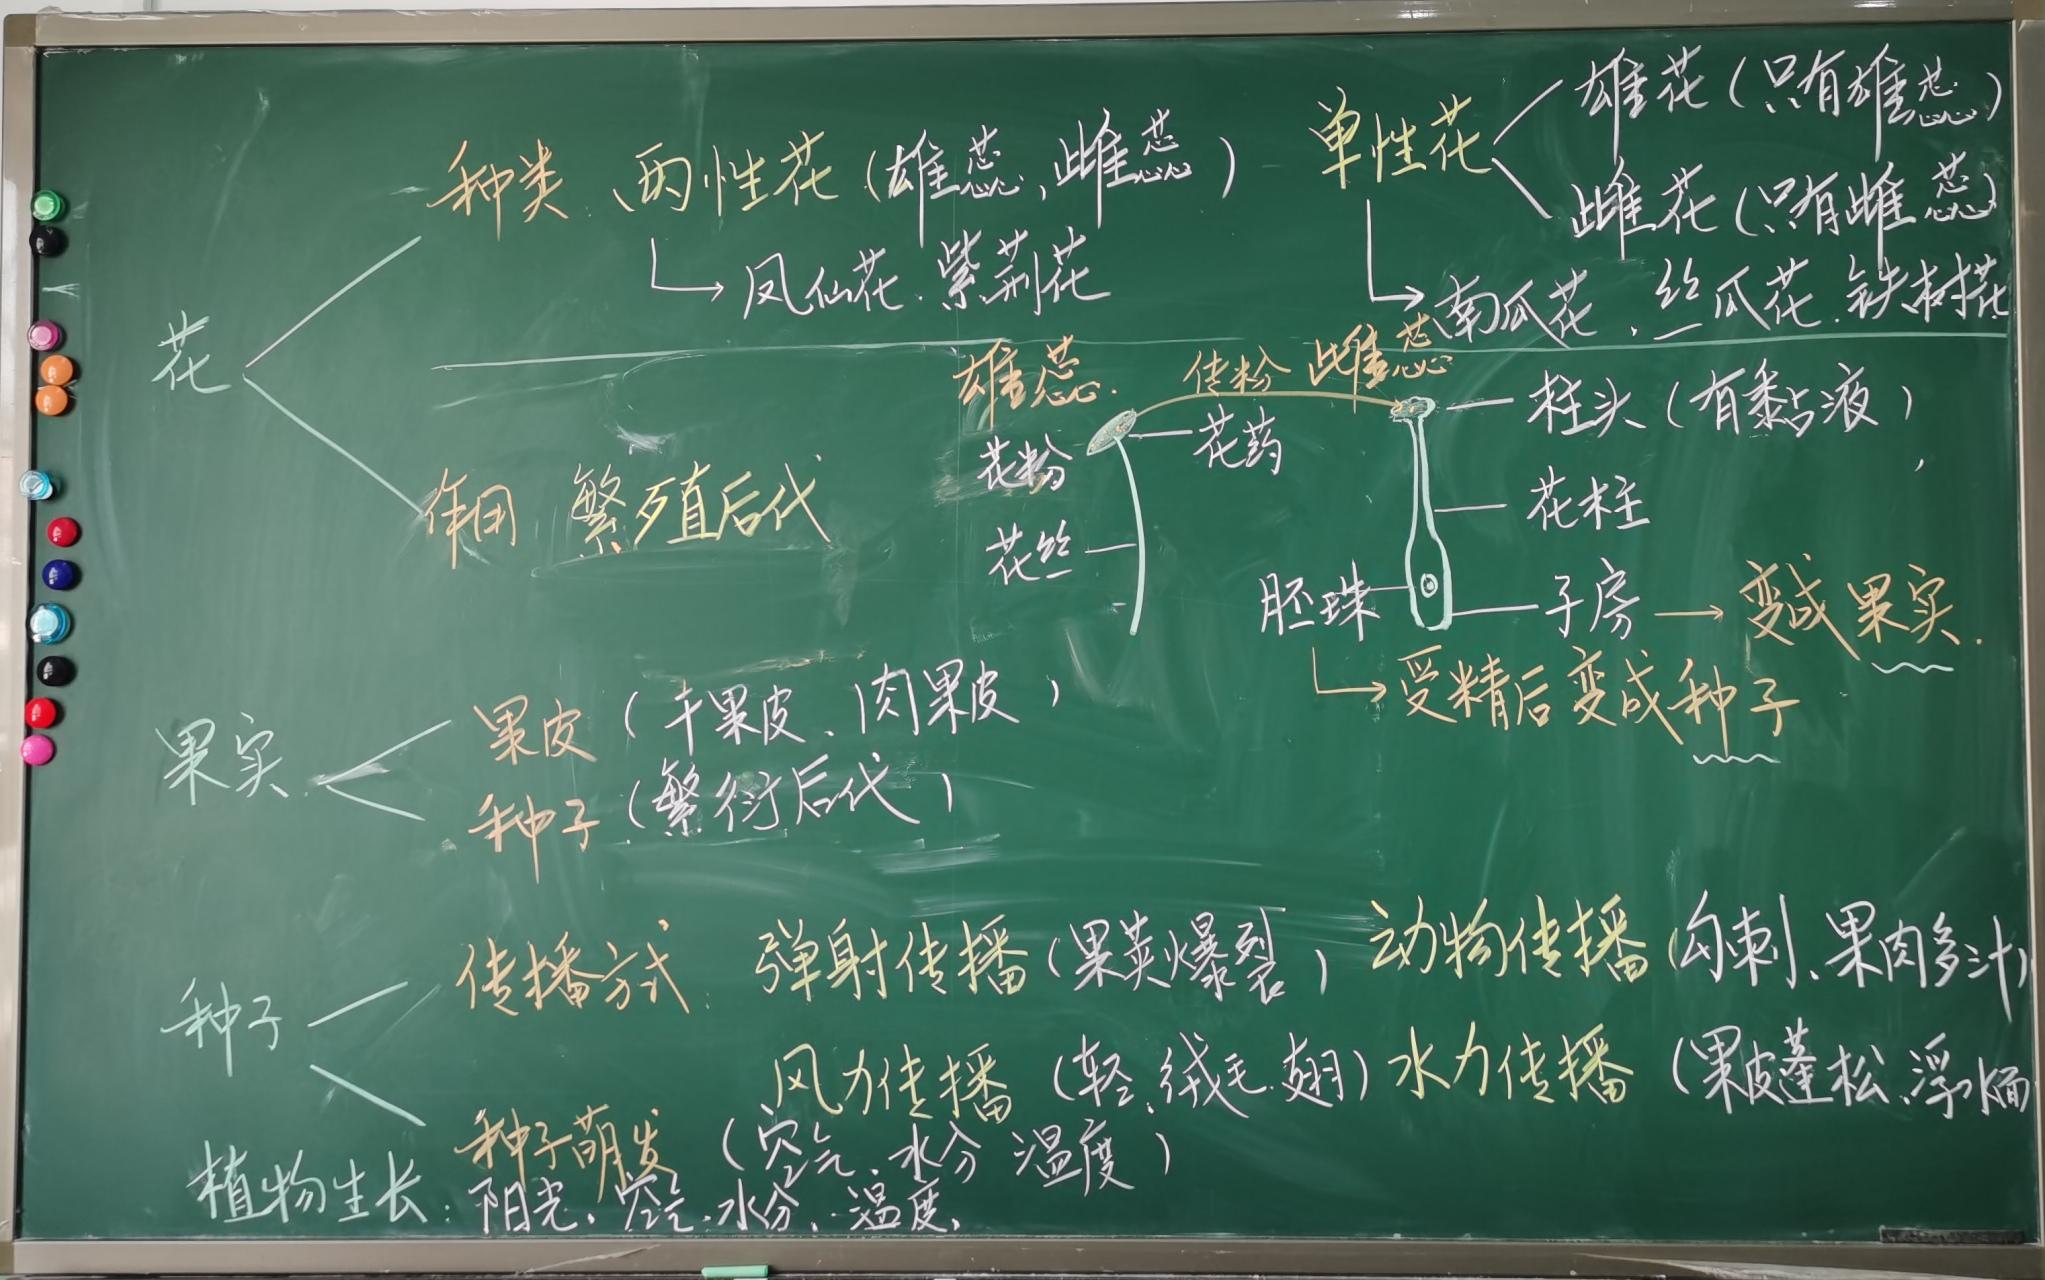 种类、两性花（雄蕊，雌蕊）
凤仙花、紫荆花
单性花
雄花（只有雄蕊）
雌花（只有雌蕊）
南瓜花、丝瓜花、铁树花
花
作用 繁殖后代
雄蕊 传粉 雌蕊
花粉 花药
花丝
柱头（有黏液）
花柱
胚珠 子房 变成果实
受精后变成种子
果实
果皮（干果皮、肉果皮）
种子（繁衍后代）
种子
传播方式： 弹射传播（果荚爆裂） 动物传播（勾刺、果肉多汁）
风力传播（轻、绒毛、翅） 水力传播（果皮蓬松、浮水面
种子萌发（空气、水分 温度）
植物生长：阳光、空气、水分、温度、